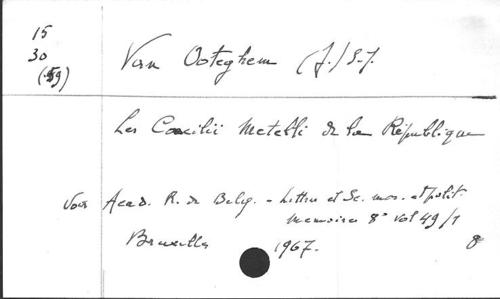 15
30
(59)
Van Ooteghem (J.) S.J.
Les Caecilii Metelli de la République
Voir Acad. R. de Belg. - Lettres et Sc. mor. et polit.
Memoires 8° vol 49/1
Bruxelles 1967.
8